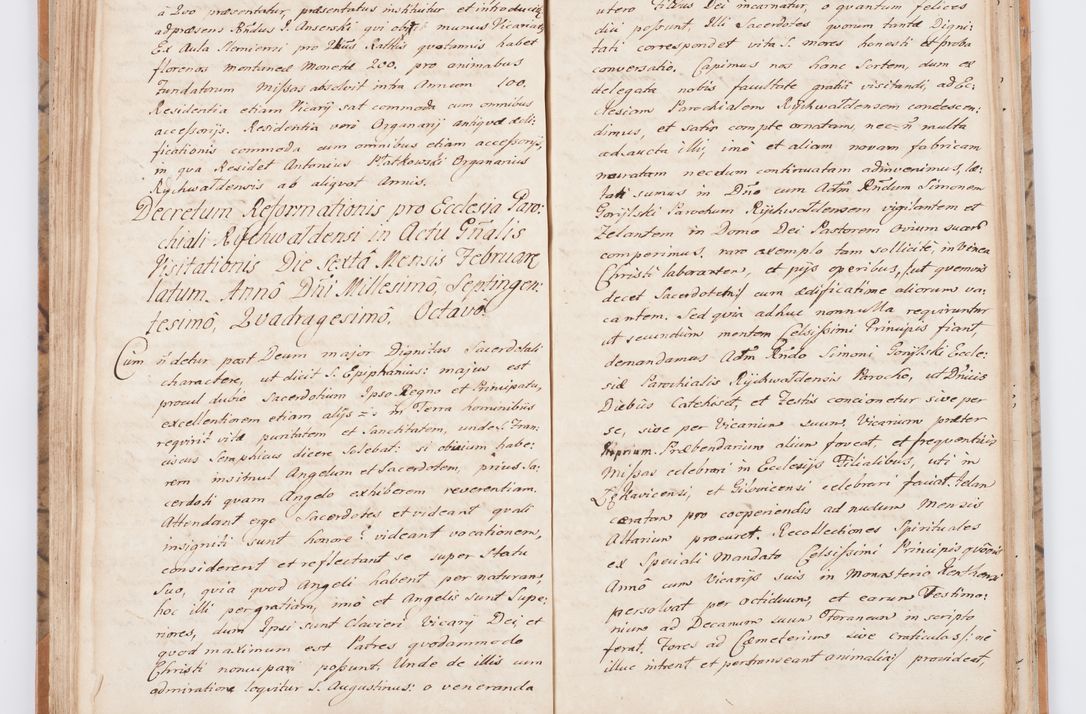 à 200 præsentatur, præsentatus instituitur et introducitur
ad præsens Rñdus J. Anserski qui obijt munus Vicariatus
Ex Aula Slemieni pro Duûs Rattis quotannis habet
florenos montanæ Monetæ 200. pro animabus
Fundatorum Missas absolvit intra Annum 100.
Residentia etiam Vicarij sat commoda cum omnibus
accessorijs. Residentia verò Organarij antiquæ ædi-
ficationis commoda cum omnibus etiam accessorijs,
in qua Residet Antonius Piatkowski Organarius
Rÿchwaldensis ab aliquot Annis.
Decretum Reformationis pro Ecclesia Paro-
chiali Rÿchwaldensi in Actu Gñalis
Visitationis Die Sextâ Mensis Februarij
latum. Annô Dñi Millesimô, Septingen
tesimô, Quadragesimô, Octavô
Cum ñ detur post Deum major Dignitas Sacerdotali
charactere, ut dicit S. Epiphanius: majus est
procul dubio Sacerdotium Ipso Regno et Principatu,
excellentiorem etiam alijs in Terra hominibus
requirit vitæ puritatem et Sanctitatem, unde S. Fran-
ciscus Seraphicus dicere solebat: si obvium habe-
rem insimul Angelum et Sacerdotem, prius Sa-
cerdoti quam Angelo exhiberem reverentiam.
Attendant ergo Sacerdotes et videant quali
insigniti sunt honore? videant vocationem,
considerent et reflectant se super statu
Suo, quia quod Angeli habent per naturam,
hoc illi per gratiam, imò et Angelis sunt Supe-
riores, dum Ipsi sunt Clavieri Vicarij Dei, et
quod maximum est Patres quodammodo
Christi nonucupari possunt. Unde de illis cum
admiratione loquitur S. Augustinus: o veneranda
utero Filius Dei incarnatur, o quantum felices
dici possunt, Illi Sacerdotes quorum tantæ Digni-
tati correspondet vita S. mores honesti et proba
conversatio. Capimus nos hanc Sortem, dum ex
delegata nobis facultate gratiâ visitandi, ad Ec-
clesiam Parochialem Rÿchwaldensem condescen-
dimus, et satis compte ornatam, nec ñ multa
adaucta illi, imò et aliam novam fabricam
muratam necdum continuatam adinvenimus, læ-
tati sumus in Dño cum Adm Rndum Simonem
Gorÿlski Parochum Rÿchwaldensem vigilantem et
Zelantem in Domo Dei Pastorem Ovium suarum
comperimus, raro exemplo tam sollicitè, in Vinea
Christi laborantem, et pijs operibus, (ut quemvis
decet Sacerdotem) cum ædificatione aliorum va-
cantem. Sed quia adhuc nonnulla requiruntur
ut secundùm mentem Celsissimi Principis fiant,
demandamus Adm Rñdo Simoni Gorÿlski Eccle-
siæ Parochialis Rÿchwaldensis Parocho, ut Dñicis
Diebus Catechiset, et Festis concionetur sive per
se, sive per Vicarium suum. Vicarium præter
proprium. Præbendarium alium foveat, et frequentius
Missas celebrari in Ecclesijs Filialibus, uti in
Lękavicensi, et Gilovicensi celebrari faciat. Telam
ceratam pro cooperiendis ad nudum Mensis
Altarium procuret. Recollectiones Spirituales
ex Speciali Mandato Celsissimi Principis quovis
Annô cum Vicarijs suis in Monasterio
persolvat per octiduum, et earum Testimo-
nium ad Decanum suum Foraneum in scripto
ferat. Fores ad Cæmeterium sive craticulas (: ne
illuc intrent et pertranseant animalia:) provideat,